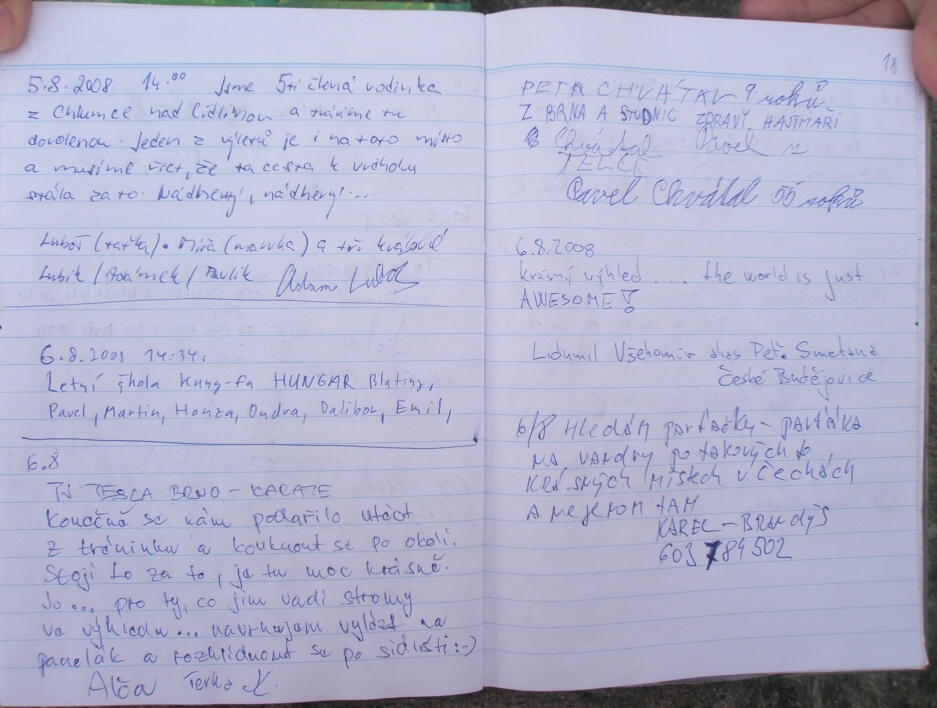 5.8.2008 14.00 Jsme 5ti členná rodinka
z Chlumce nad Cidlinou a trávíme tu
dovolenou. Jeden z výletů je i na toto místo
a musíme říct, že ta cesta k vrcholu
stála za to. Nádherný, nádherný...
Luboš (taťka). Míra (mamka) a tři králové
Lubík / Adámek / Pavlík Adam Luboš
6.8.2008 14.34.
Letní škola Kung-fu HUNGAR
Pavel, Martin, Honza, Ondra, Dalibor, Emil,
6.8
TJ TESLA BRNO - KARATE
Konečně se nám podařilo utéct
z tréninku a kouknout se po okolí.
Stojí to za to, je tu moc krásně.
Jo... pro ty, co jim vadí stromy
ve výhledu... navrhujem vylézt na
panelák a rozhlídnout se po sídlišti :-)
Alča Terka K.
18
PETR CHVÁTAL 9 roků
Z BRNA A STUDNIC ZDRAVÍ HAJTMAŘI
Chvátal Pavel
TELČ
Pavel Chvátal 55 roků
6.8.2008
krásný výhled.... the world is just
AWESOME!
Lidumil Všehomír alias Petr Smetana
České Budějovice
6/8 Hledám parťačky - parťáka
na vandry po takových to
krásných místech v Čechách
a nejenom tam
KAREL - BRANDÝS
603 784 502